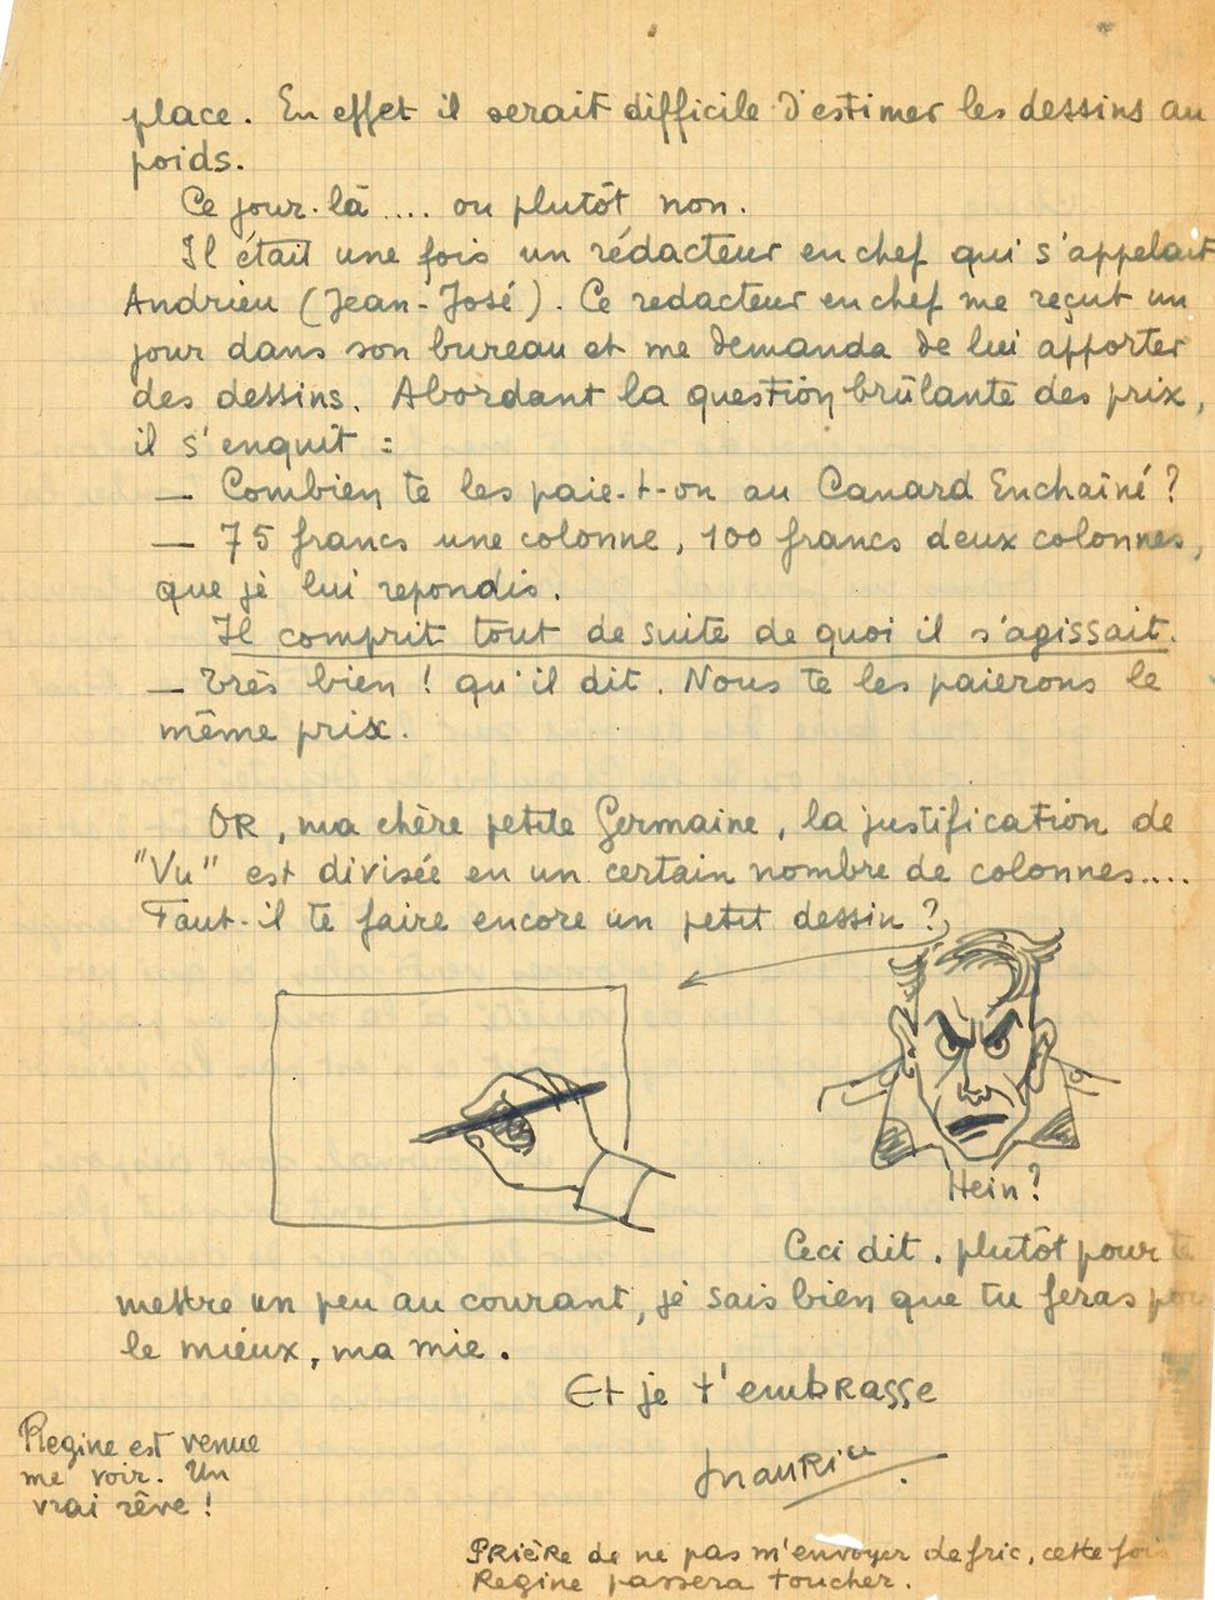 place. En effet il serait difficile d'estimer les dessins au
poids.
Ce jour-là .... ou plutôt non.
Il était une fois un rédacteur en chef qui s'appelait
Andrieu (Jean-José). Ce redacteur en chef me reçut un
jour dans son bureau et me demanda de lui apporter
des dessins. Abordant la question brûlante des prix,
il s'enquit :
— Combien te les paie-t-on au Canard Enchaîné ?
— 75 francs une colonne, 100 francs deux colonnes,
que je lui repondis.
Il comprit tout de suite de quoi il s'agissait.
— Très bien ! qu'il dit. Nous te les paierons le
même prix.
OR, ma chère petite Germaine, la justification de
"Vu" est divisée en un certain nombre de colonnes....
Faut-il te faire encore un petit dessin ?
Hein ?
Ceci dit, plutôt pour te
mettre un peu au courant, je sais bien que tu feras pour
le mieux, ma mie.
Et je t'embrasse
Maurice
Regine est venue
me voir. Un
vrai rêve !
Prière de ne pas m'envoyer de fric, cette fois
Regine passera toucher.